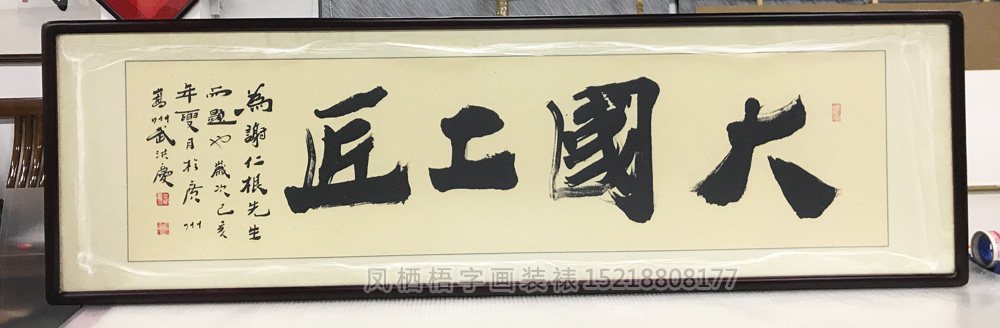 大國工匠
為謝仁根先生
而題也歲次己亥
年夏月於廣州
嵩州武洪慶
凤栖梧字画装裱15218808177